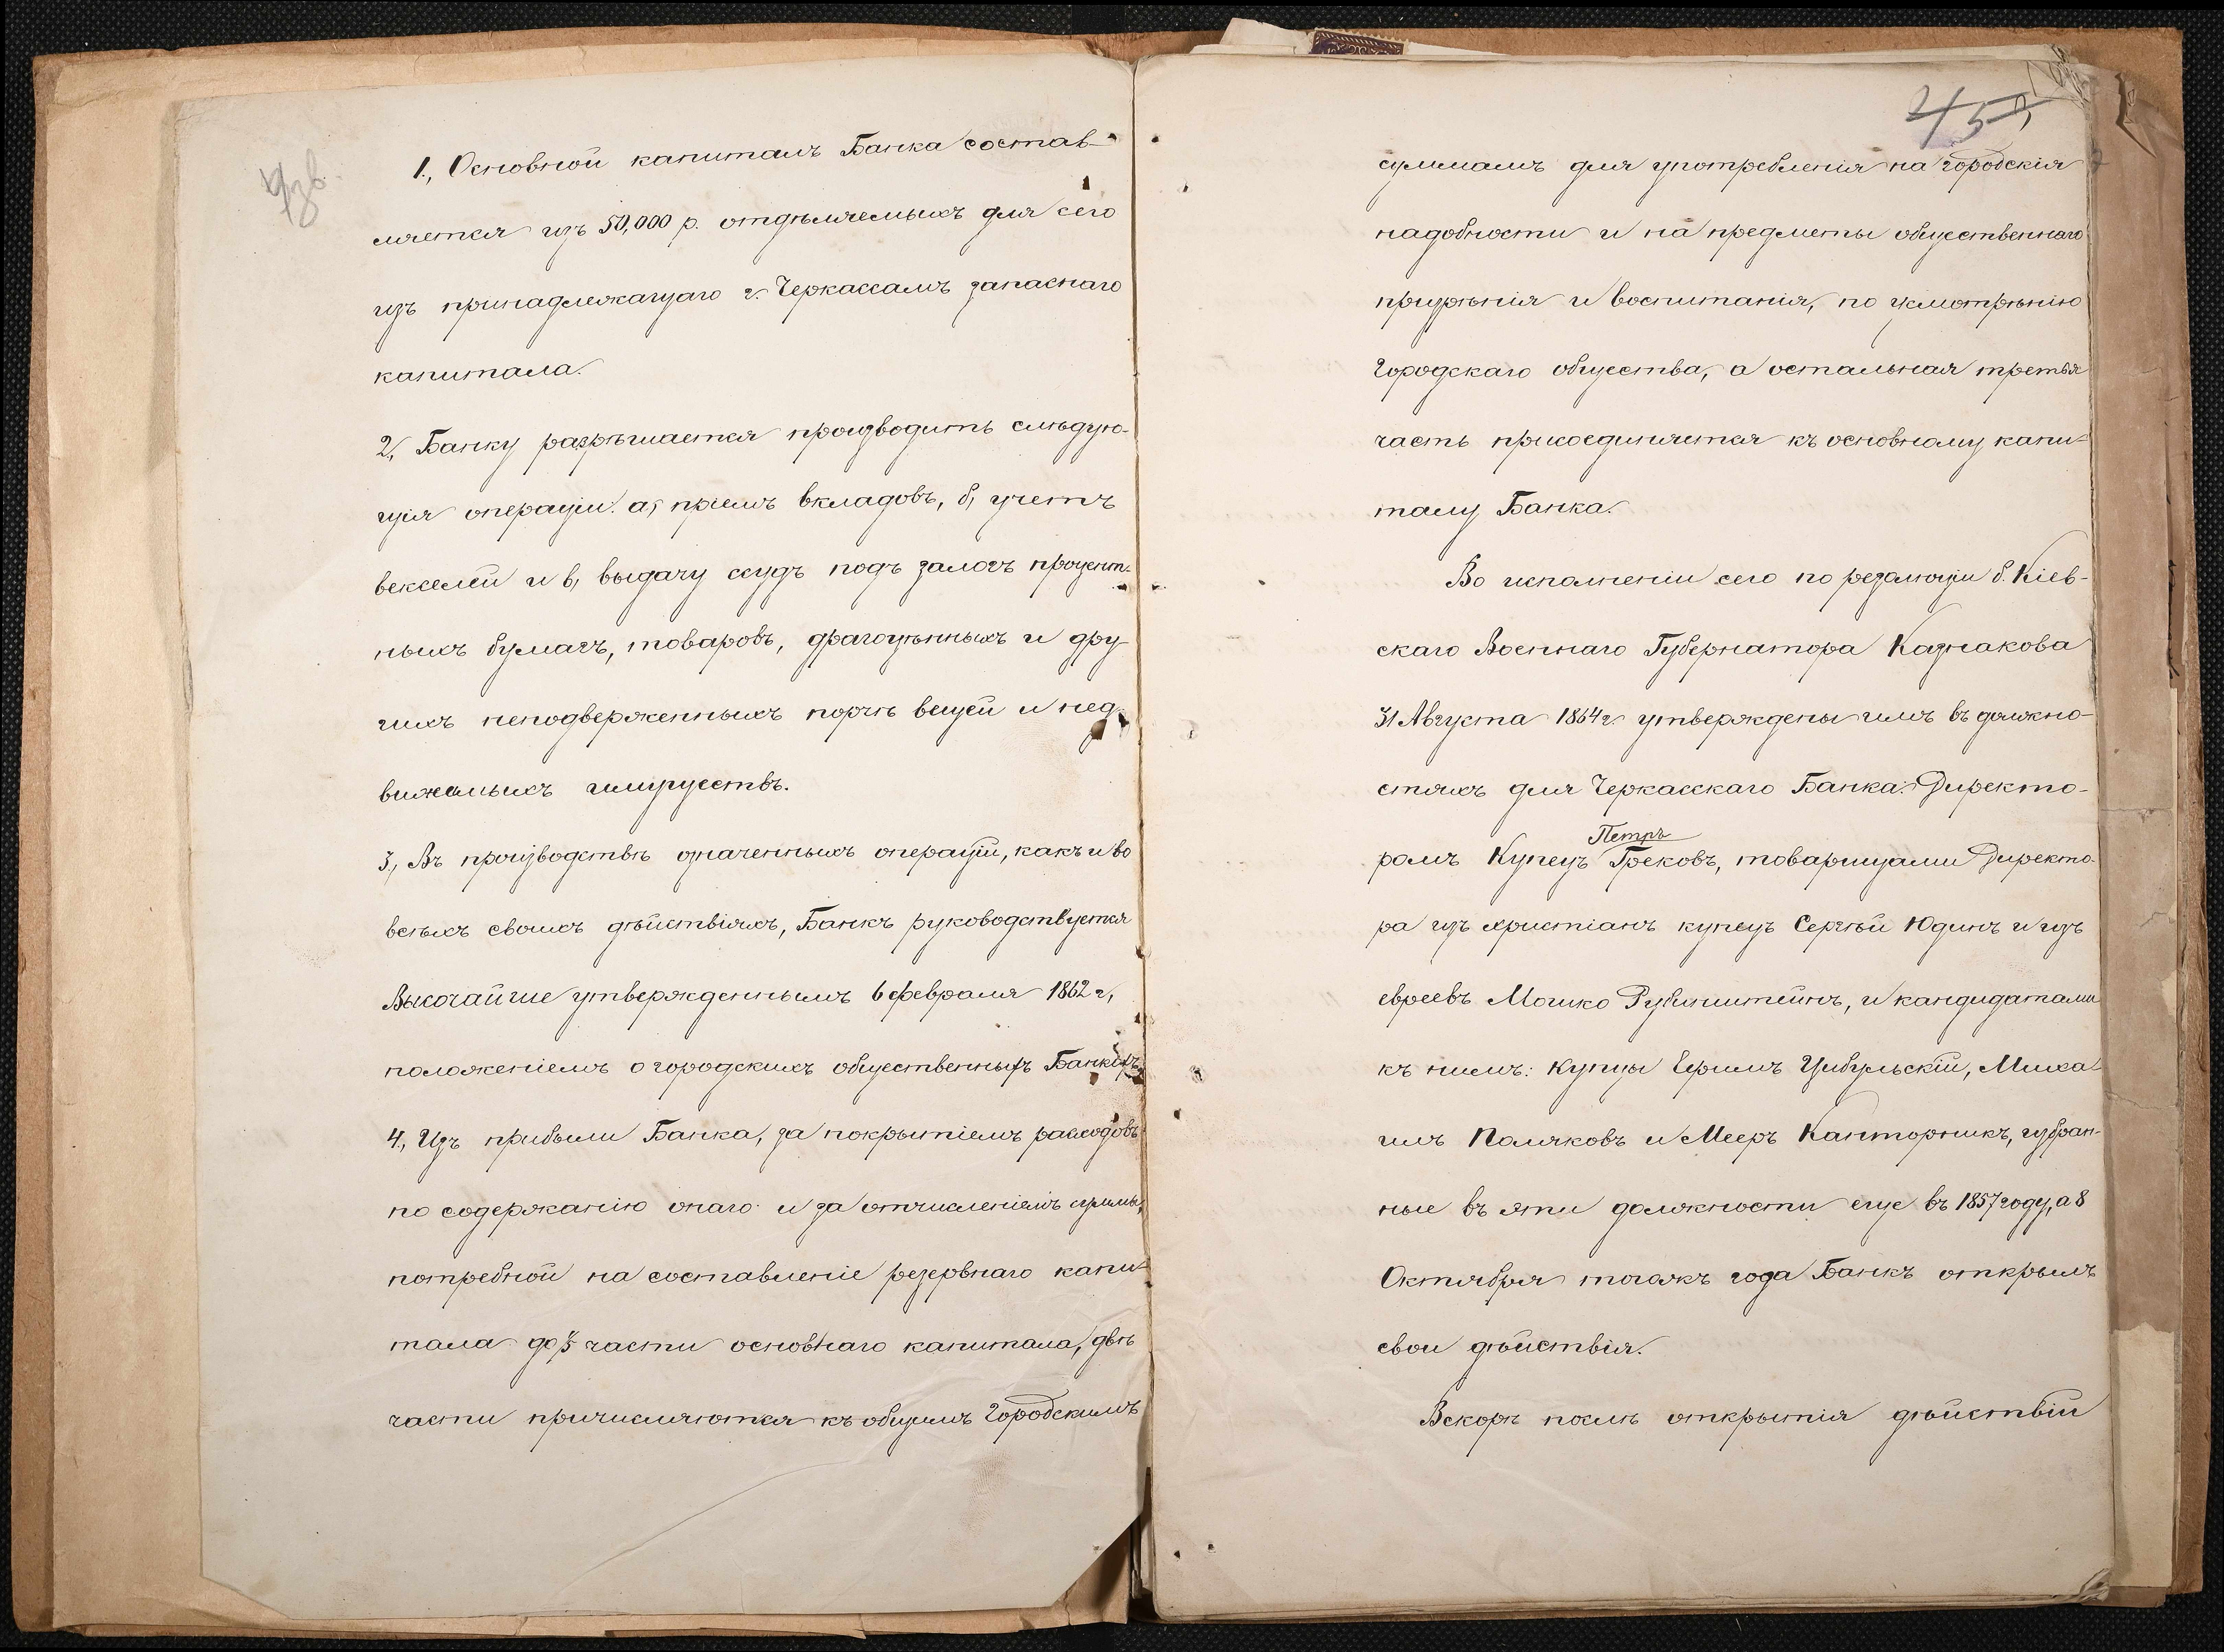 1., Основной капиталъ Банка состав-
ляется изъ 50,000 р. отдѣляемыхъ для сего
изъ принадлежащаго г. Черкассамъ запаснаго
капитала.
2., Банку разрѣшается производить слѣдую-
щія операціи: а, пріемъ вкладовъ, б, учетъ
векселей и в, выдачу ссудъ подъ залогъ процент-
ныхъ бумагъ, товаровъ, драгоцѣнныхъ и дру-
гихъ неподверженныхъ порчѣ вещей и нед-
вижимыхъ имуществъ.
3., Въ производствѣ означенныхъ операцій, какъ и во
всѣхъ своихъ дѣйствіяхъ, Банкъ руководствуется
Высочайше утвержденнымъ 6 февраля 1862 г,
положеніемъ о городскихъ общественныхъ Банкахъ.
4., Изъ прибыли Банка, за покрытіемъ расходовъ
по содержанію онаго и за отчисленіемъ суммы,
потребной на составленіе резервнаго капи-
тала до ⅓ части основнаго капитала, двѣ
части причисляются къ общимъ Городскимъ
45
суммамъ для употребленія на городскія
надобности и на предметы общественнаго
призрѣнія и воспитанія, по усмотрѣнію
Городскаго общества, а остальная третья
часть присоединяется къ основному капи-
талу Банка.
Во исполненіи сего по резолюціи б. Кіев-
скаго Военнаго Губернатора Казнакова
31 Августа 1864 г. утверждены имъ въ должно-
стяхъ для Черкасскаго Банка: Директо-
Петръ
ромъ Купецъ Грековъ, товарищами Директо-
ра изъ христіанъ купецъ Сергѣй Юдинъ и изъ
евреевъ Мошко Рубинштейнъ, и кандидатами
къ нимъ: купцы Ефимъ Цибульскій, Миха-
илъ Поляковъ и Мееръ Канторникъ, избран-
ные въ эти должности еще въ 1857 году, а 8
Октября тогожъ года Банкъ открылъ
свои дѣйствія.
Вскорѣ послѣ открытія дѣйствій